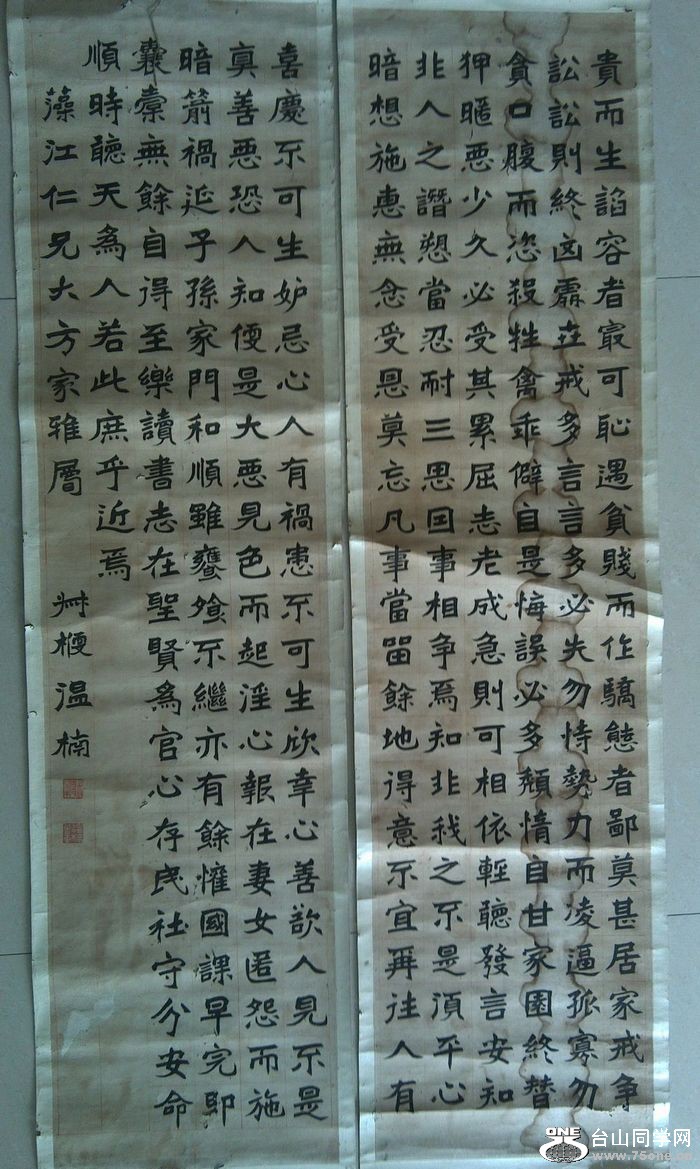 貴而生諂容者冣可恥遇貧賤而作驕態者鄙莫甚居家戒争
訟訟則終凶處世戒多言言多必失勿恃勢力而凌逼孤寡勿
貪口腹而恣殺牲禽乖僻自是悔誤必多頹惰自甘家園終替
狎暱惡少久必受其累屈志老成急則可相依輕聽發言安知
非人之譖愬當忍耐三思因事相争焉知非我之不是須平心
暗想施惠無念受恩莫忘凡事當留餘地得意不宜再往人有
喜慶不可生妒忌心人有禍患不可生欣幸心善欲人見不是
真善惡恐人知便是大惡見色而起淫心報在妻女匿怨而施
暗箭禍延子孫家門和順雖饔飧不繼亦有餘懽國課早完即
囊橐無餘自得至樂讀書志在聖賢為官心存民社守分安命
順時聽天為人若此庶乎近焉
藻江仁兄大方家雅屬
艸梗溫楠
ONE 台山同学网